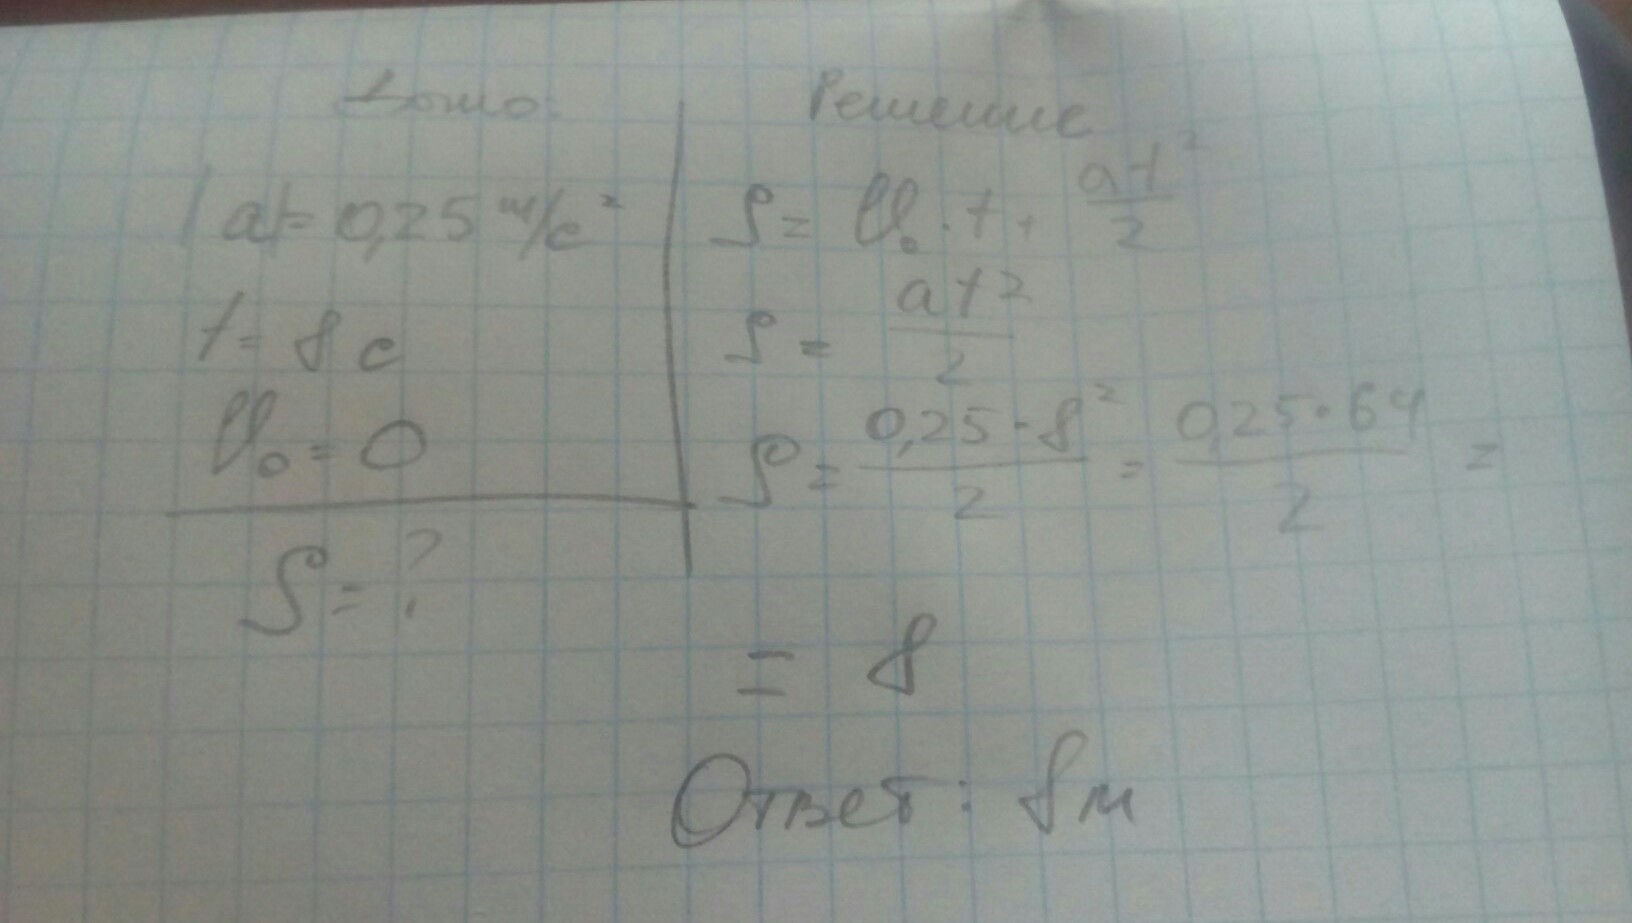 Дано:
|a|= 0,25 м/с²
t= 8 с
V₀ = 0
S = ?
Решение
S = V₀ · t + at²/2
S = at²/2
S = 0,25 · 8²/2 = 0,25 · 64/2 =
= 8
Ответ: 8м